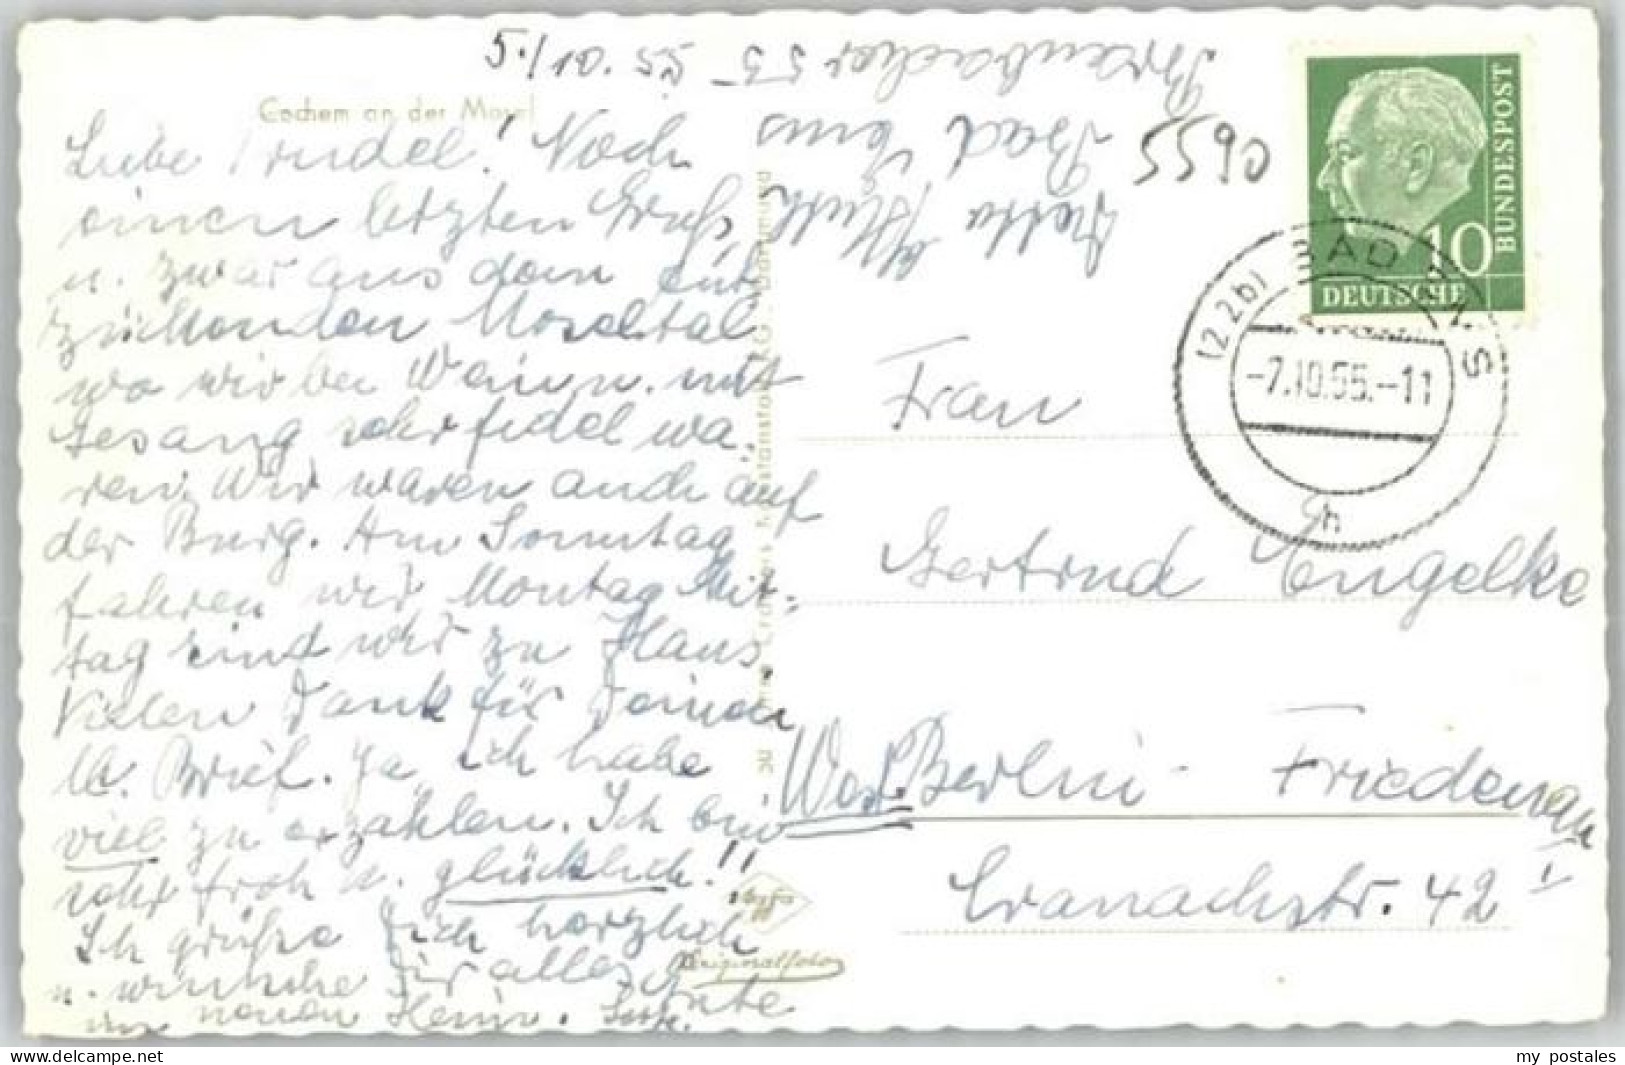 5./10. 55.
Cochem an der Mosel
Liebe Trudel! Noch
einen letzten Gruß
u. zwar aus dem ent
zückenden Moseltal
wo wir bei Wein u. mit
Gesang sehr fidel wa-
ren. Wir waren auch auf
der Burg. Am Sonntag
fahren wir Montag Mit-
tag sind wir zu Haus.
Vielen Dank für Deinen
lb. Brief. Ja, ich habe
viel zu erzählen. Ich bin
sehr froh u. glücklich!!
Ich grüße Dich herzlich
u. wünsche Dir alles Gute
im neuen Heim.
Bad Ems
55
5590
DEUTSCHE
BUNDESPOST
10
(22b) BAD EMS
-7.10.55.-11
h
Frau
Gertrud Engelke
West Berlin - Friedenau
Cranachstr. 42 I
Agfa
Originalfoto
my_postales
delcampe.net